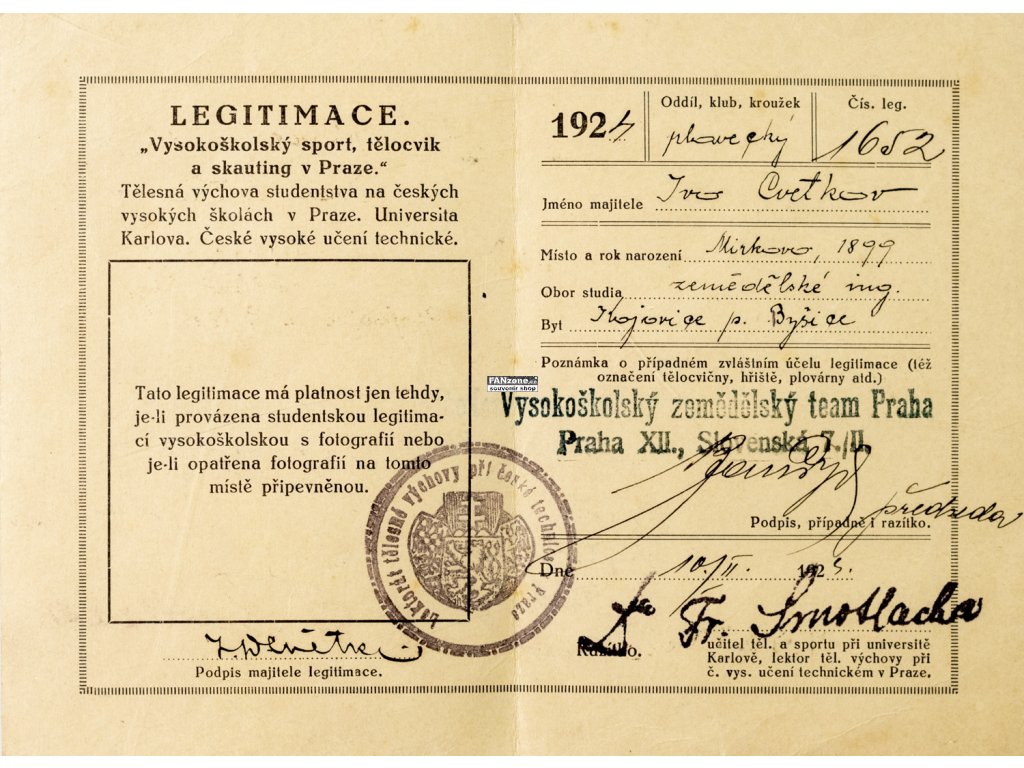 LEGITIMACE.
„Vysokoškolský sport, tělocvik
a skauting v Praze.“
Tělesná výchova studentstva na českých
vysokých školách v Praze. Universita
Karlova. České vysoké učení technické.
Tato legitimace má platnost jen tehdy,
je-li provázena studentskou legitima-
cí vysokoškolskou s fotografií nebo
je-li opatřena fotografií na tomto
místě připevněnou.
Podpis majitele legitimace.
1924
Oddíl, klub, kroužek
plavecký
Čís. leg.
1652
Jméno majitele Ivo Cvetkov
Místo a rok narození Mirkovo, 1899
Obor studia zemědělské ing.
Byt Kojovice p. Byšice
Poznámka o případném zvláštním účelu legitimace (též
označení tělocvičny, hřiště, plovárny atd.)
FANzone.cz
souvenir shop
Vysokoškolský zemědělský team Praha
Praha XII., Slovenská 7./II.
předseda
Podpis, případně i razítko.
Lektorát tělesné výchovy při české technice Praza
Dne 10./II. 1924.
Fr. Smotlacha
Razítko.
učitel těl. a sportu při universitě
Karlově, lektor těl. výchovy při
č. vys. učení technickém v Praze.